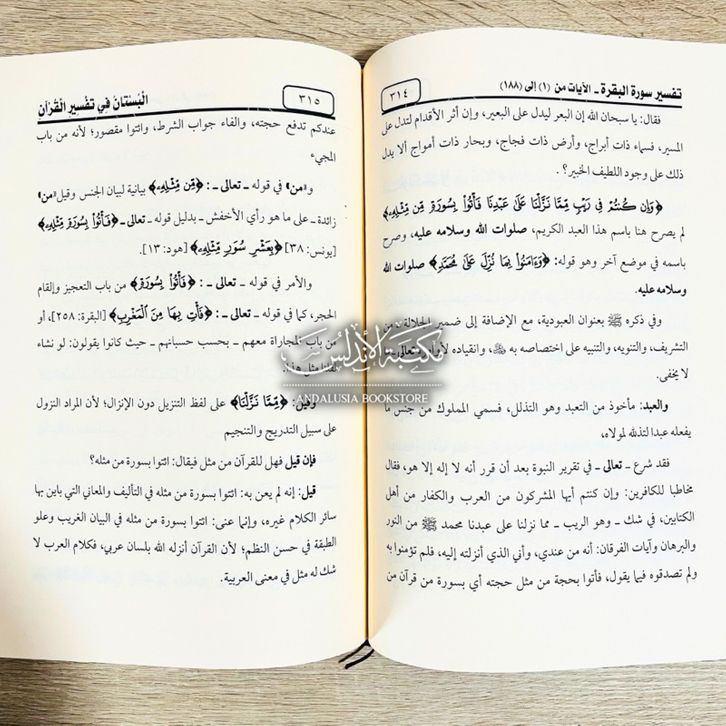 تفسير سورة البقرة ـ الآيات من (١) إلى (١٨٨)
٣١٤
فقال: يا سبحان الله إن البعر ليدل على البعير، وإن أثر الأقدام لتدل على
المسير، فسماء ذات أبراج، وأرض ذات فجاج، وبحار ذات أمواج ألا يدل
ذلك على وجود اللطيف الخبير؟.
﴿وَإِن كُنتُمْ فِي رَيْبٍ مِّمَّا نَزَّلْنَا عَلَىٰ عَبْدِنَا فَأْتُوا۟ بِسُورَةٍ مِّن مِّثْلِهِۦ﴾
لم يصرح هنا باسم هذا العبد الكريم، صلوات الله وسلامه عليه، وصرح
باسمه في موضع آخر وهو قوله: ﴿وَءَامَنُوا۟ بِمَا نُزِّلَ عَلَىٰ مُحَمَّدٍ﴾ صلوات الله
وسلامه عليه.
وفي ذكره ﷺ بعنوان العبودية، مع الإضافة إلى ضمير الجلالة من
التشريف، والتنويه، والتنبيه على اختصاصه به ﷻ، وانقياده لأوامره تعالى ما
لا يخفى.
والعبد: مأخوذ من التعبد وهو التذلل، فسمي المملوك من جنس ما
يفعله عبدا لتذلله لمولاه،
فقد شرع ـ تعالى ـ في تقرير النبوة بعد أن قرر أنه لا إله إلا هو، فقال
مخاطبا للكافرين: وإن كنتم أيها المشركون من العرب والكفار من أهل
الكتابين، في شك ـ وهو الريب ـ مما نزلنا على عبدنا محمد ﷺ من النور
والبرهان وآيات الفرقان: أنه من عندي، وأني الذي أنزلته إليه، فلم تؤمنوا به
ولم تصدقوه فيما يقول، فأتوا بحجة من مثل حجته أي بسورة من قرآن من
البستان في تفسير القرآن
٣١٥
عندكم تدفع حجته، والفاء جواب الشرط، وائتوا مقصور؛ لأنه من باب
المجيء
و«من» في قوله ـ تعالى ـ: ﴿مِّن مِّثْلِهِۦ﴾ بيانية لبيان الجنس وقيل «من»
زائدة ـ على ما هو رأي الأخفش ـ بدليل قوله ـ تعالى ـ ﴿فَأْتُوا۟ بِسُورَةٍ مِّثْلِهِۦ﴾
[يونس: ٣٨] ﴿بِعَشْرِ سُوَرٍ مِّثْلِهِۦ﴾ [هود: ١٣].
والأمر في قوله ـ تعالى ـ: ﴿فَأْتُوا۟ بِسُورَةٍ﴾ من باب التعجيز وإلقام
الحجر، كما في قوله ـ تعالى ـ: ﴿فَأْتِ بِهَا مِنَ ٱلْمَغْرِبِ﴾ [البقرة: ٢٥٨]، أو
من باب المجاراة معهم ـ بحسب حسبانهم ـ حيث كانوا يقولون: لو نشاء
لقلنا مثل هذا.
وقيل: ﴿مِّمَّا نَزَّلْنَا﴾ على لفظ التنزيل دون الإنزال؛ لأن المراد النزول
على سبيل التدريج والتنجيم
فإن قيل فهل للقرآن من مثل فيقال: ائتوا بسورة من مثله؟
قيل: إنه لم يعن به: ائتوا بسورة من مثله في التأليف والمعاني التي باين بها
سائر الكلام غيره، وإنما عنى: ائتوا بسورة من مثله في البيان الغريب وعلو
الطبقة في حسن النظم؛ لأن القرآن أنزله الله بلسان عربي، فكلام العرب لا
شك له مثل في معنى العربية.
مكتبة الأندلس
ANDALUSIA BOOKSTORE